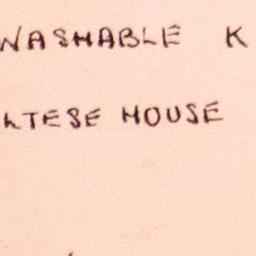 WASHABLE K
LTESE HOUSE